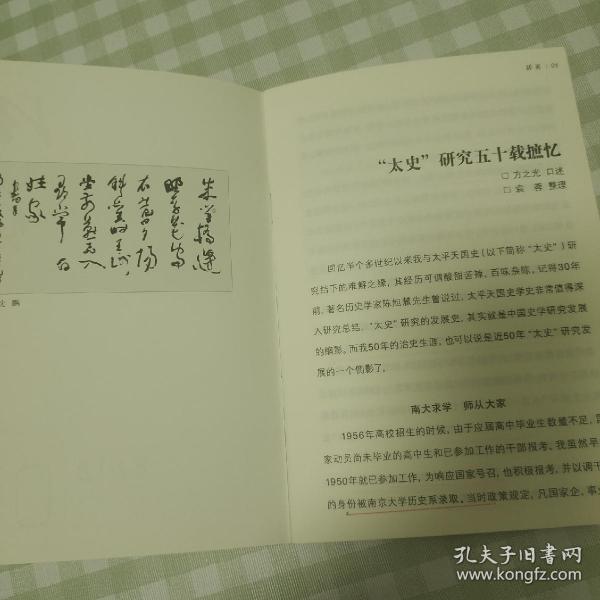 朱雀桥边
野草花乌
衣巷口夕阳
斜旧时王谢
堂前燕飞入
寻常百
姓家
鹏
“太史”研究五十载摭忆
□ 方之光 口述
□ 袁 蓉 整理
回忆半个多世纪以来我与太平天国史（以下简称“太史”）研
究结下的难解之缘，其经历可谓酸甜苦辣，百味杂陈。记得30年
前，著名历史学家陈旭麓先生曾说过，太平天国史学史非常值得深
入研究总结，“太史”研究的发展史，其实就是中国史学研究发展
的缩影。而我50年的治史生涯，也可以说是近50年“太史”研究发
展的一个侧影了。
南大求学 师从大家
1956年高校招生的时候，由于应届高中毕业生数量不足，国
家动员尚未毕业的高中生和已参加工作的干部报考。我虽然早
1950年就已参加工作，为响应国家号召，也积极报考，并以调干
的身份被南京大学历史系录取。当时政策规定，凡国家企、事
孔夫子旧书网
www.kongfz.com